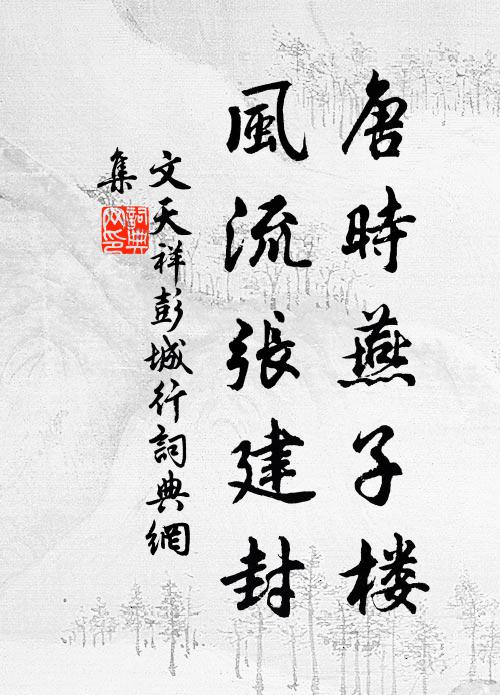 唐時燕子楼
風流張建封
文天祥彭城行詞典網
集
詞典
网印